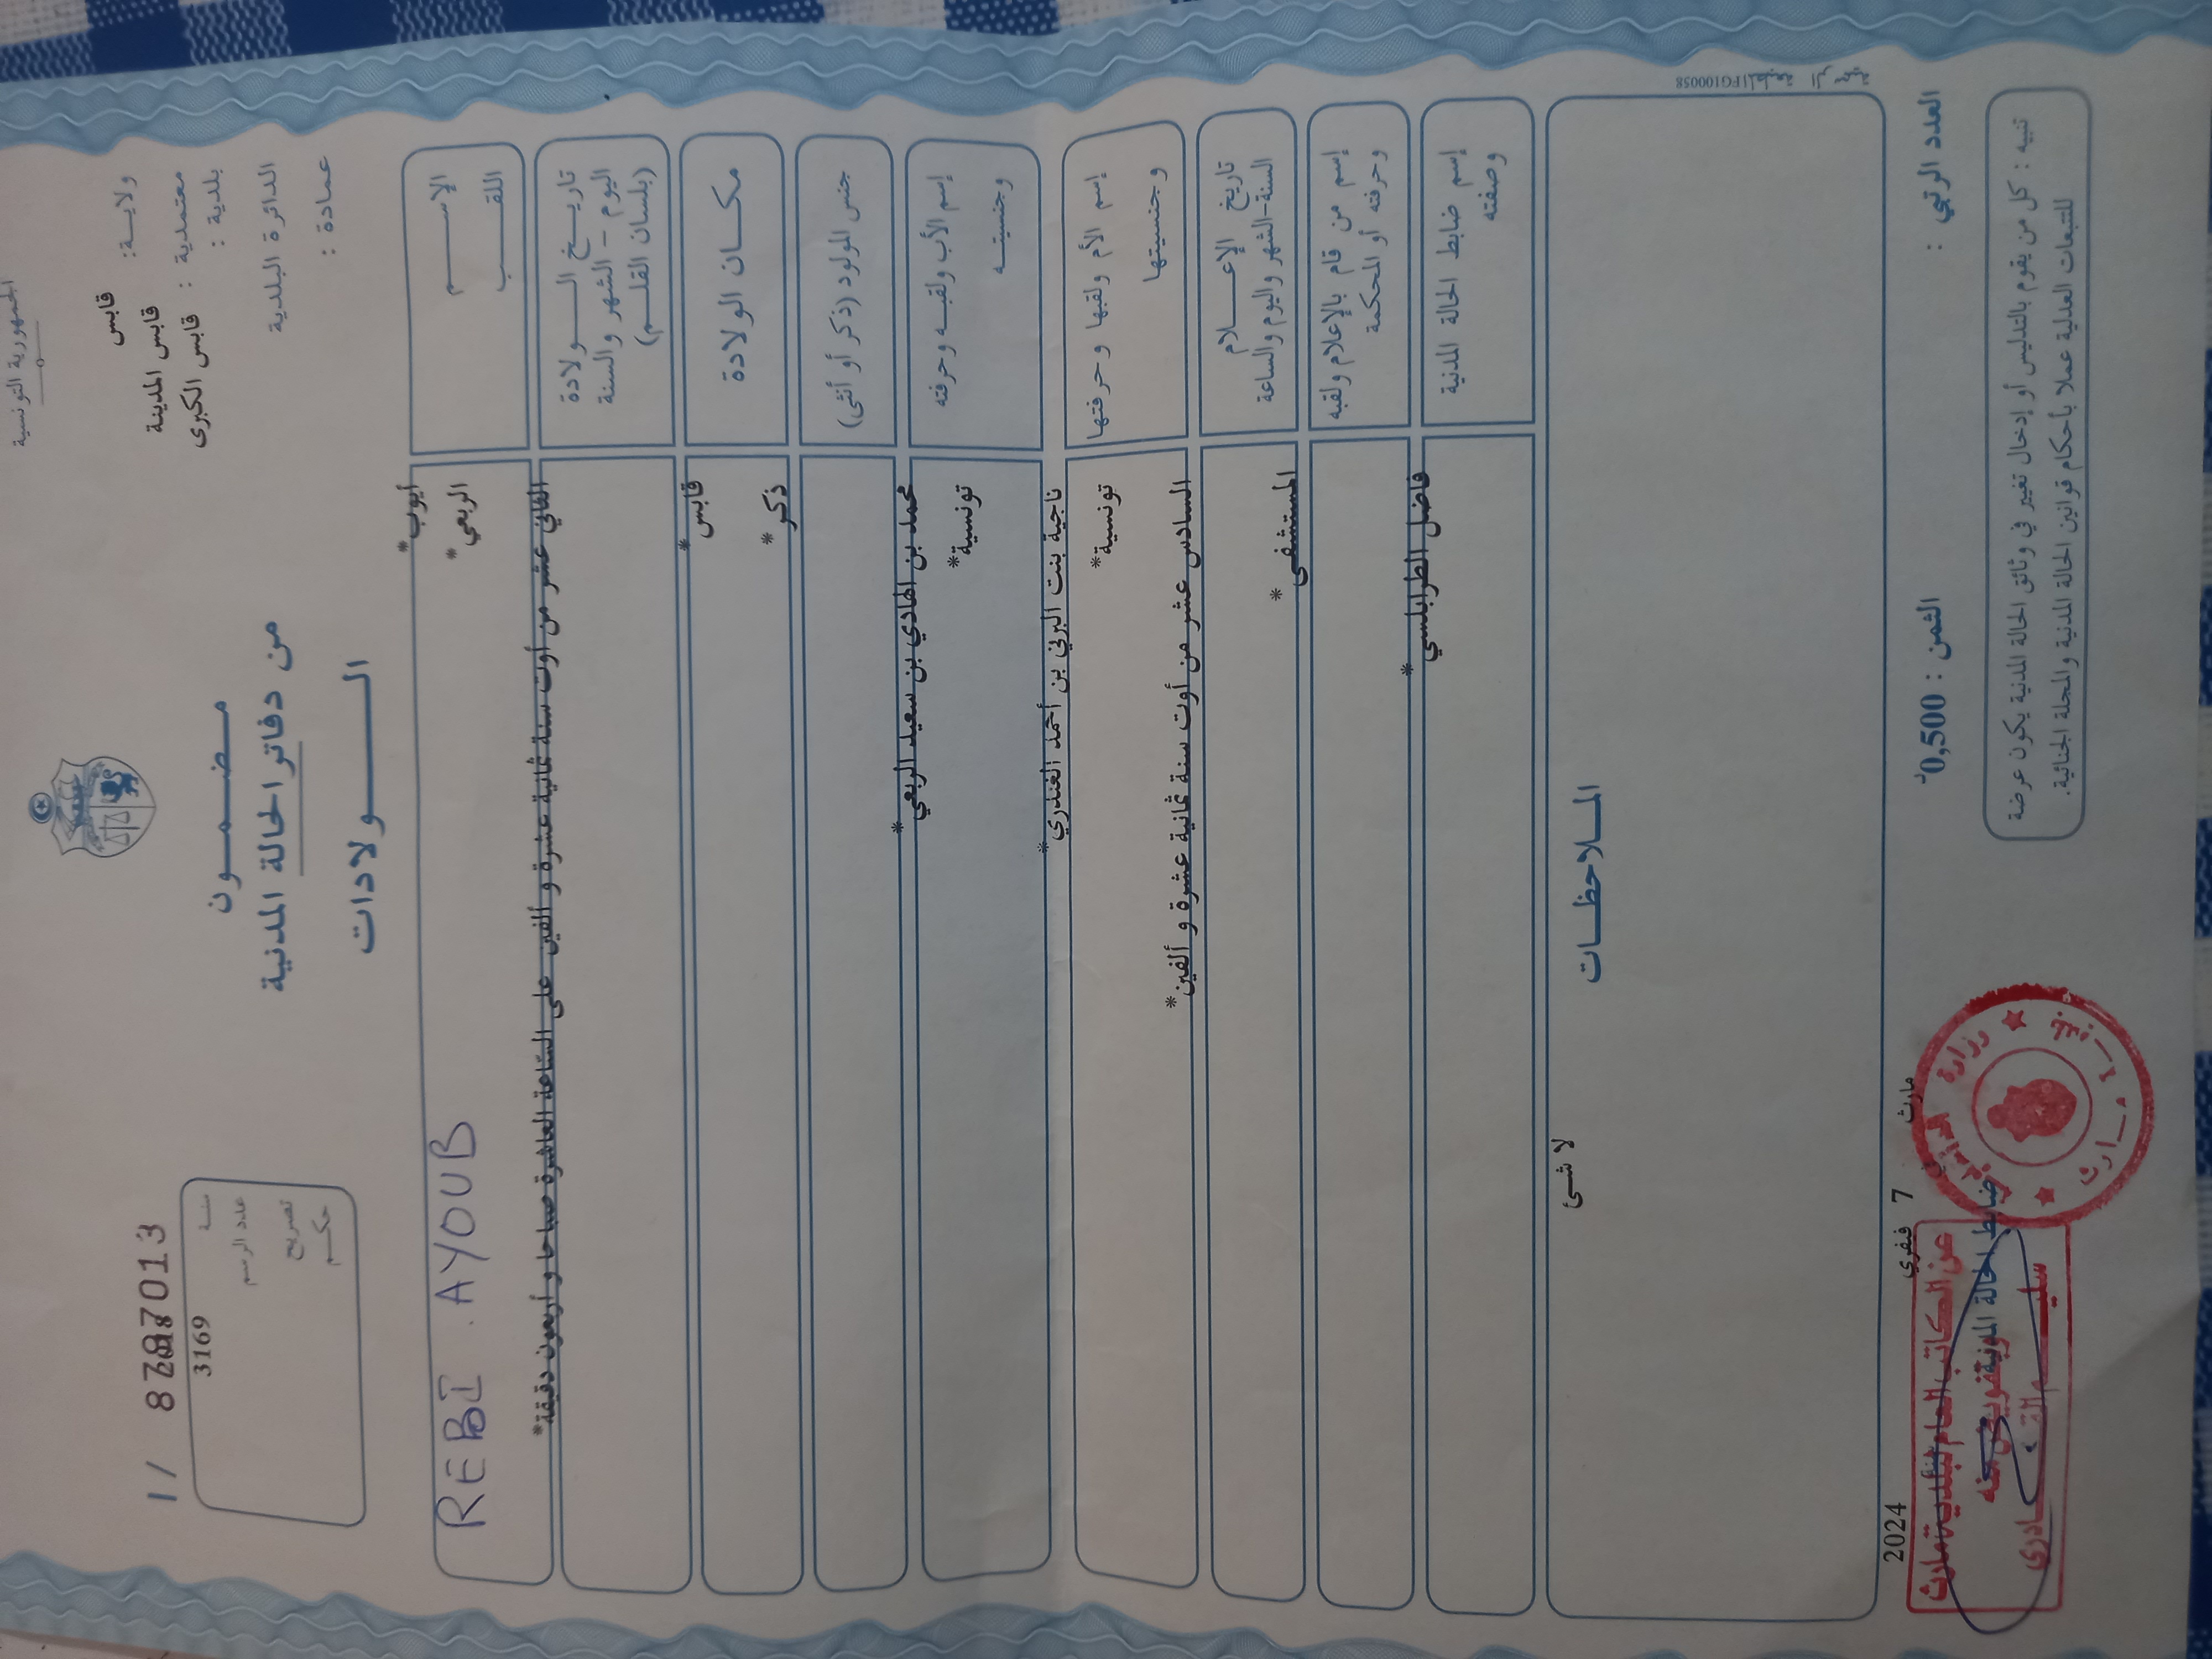 الجمهورية التونسية
ولايـــة: قابس
معتمدية : قابس المدينة
بلدية : قابس الكبرى
الدائرة البلدية
عمادة :
مـــضـــمـــون
من دفاتر الحالة المدنية
الـــــولادات
1/ 8287013
سنة
عدد الرسم 3169
تصريح
حكم
الإســـــم
اللقـــــب
أيوب*
الربعي*
REBI . AYOUB
تاريـــخ الــــولادة
اليوم - الشهر والسنة
(بلسان القلـــم)
الثاني عشر من أوت سنة ثمانية عشرة و ألفين على الساعة العاشرة صباحا و أربعون دقيقة*
مكـــان الولادة
قابس*
جنس المولود (ذكر أو أنثى)
ذكر*
إسم الأب ولقبـــه وحرفته
وجنسيتـــه
محمد بن الهادي بن سعيد الربعي*
تونسية*
إسم الأم ولقبها وحرفتها
وجنسيتها
ناجية بنت البرني بن أحمد الغندري*
تونسية*
تاريخ الإعــــلام
السنة-الشهر واليوم والساعة
السادس عشر من أوت سنة ثمانية عشرة و ألفين*
إسم من قام بالإعلام ولقبه
وحرفته أو المحكمة
المستشفى*
إسم ضابط الحالة المدنية
وصفته
فاضل الطرابلسي*
المـــلاحظـــات
لا شئ
المطبعة الرسمية 1FG100058
العدد الرتبي :
الثمن : 0,500د
مارث في 7 فيفري 2024
ضابط الحالة المدنية
عن الكاتب العام لبلدية مارث
وبتفويض منه
وزارة الداخلية
بلدية مارث
تنبيه : كل من يقوم بالتدليس أو إدخال تغيير في وثائق الحالة المدنية يكون عرضة
للتتبعات العدلية عملا بأحكام قوانين الحالة المدنية والمجلة الجنائية.